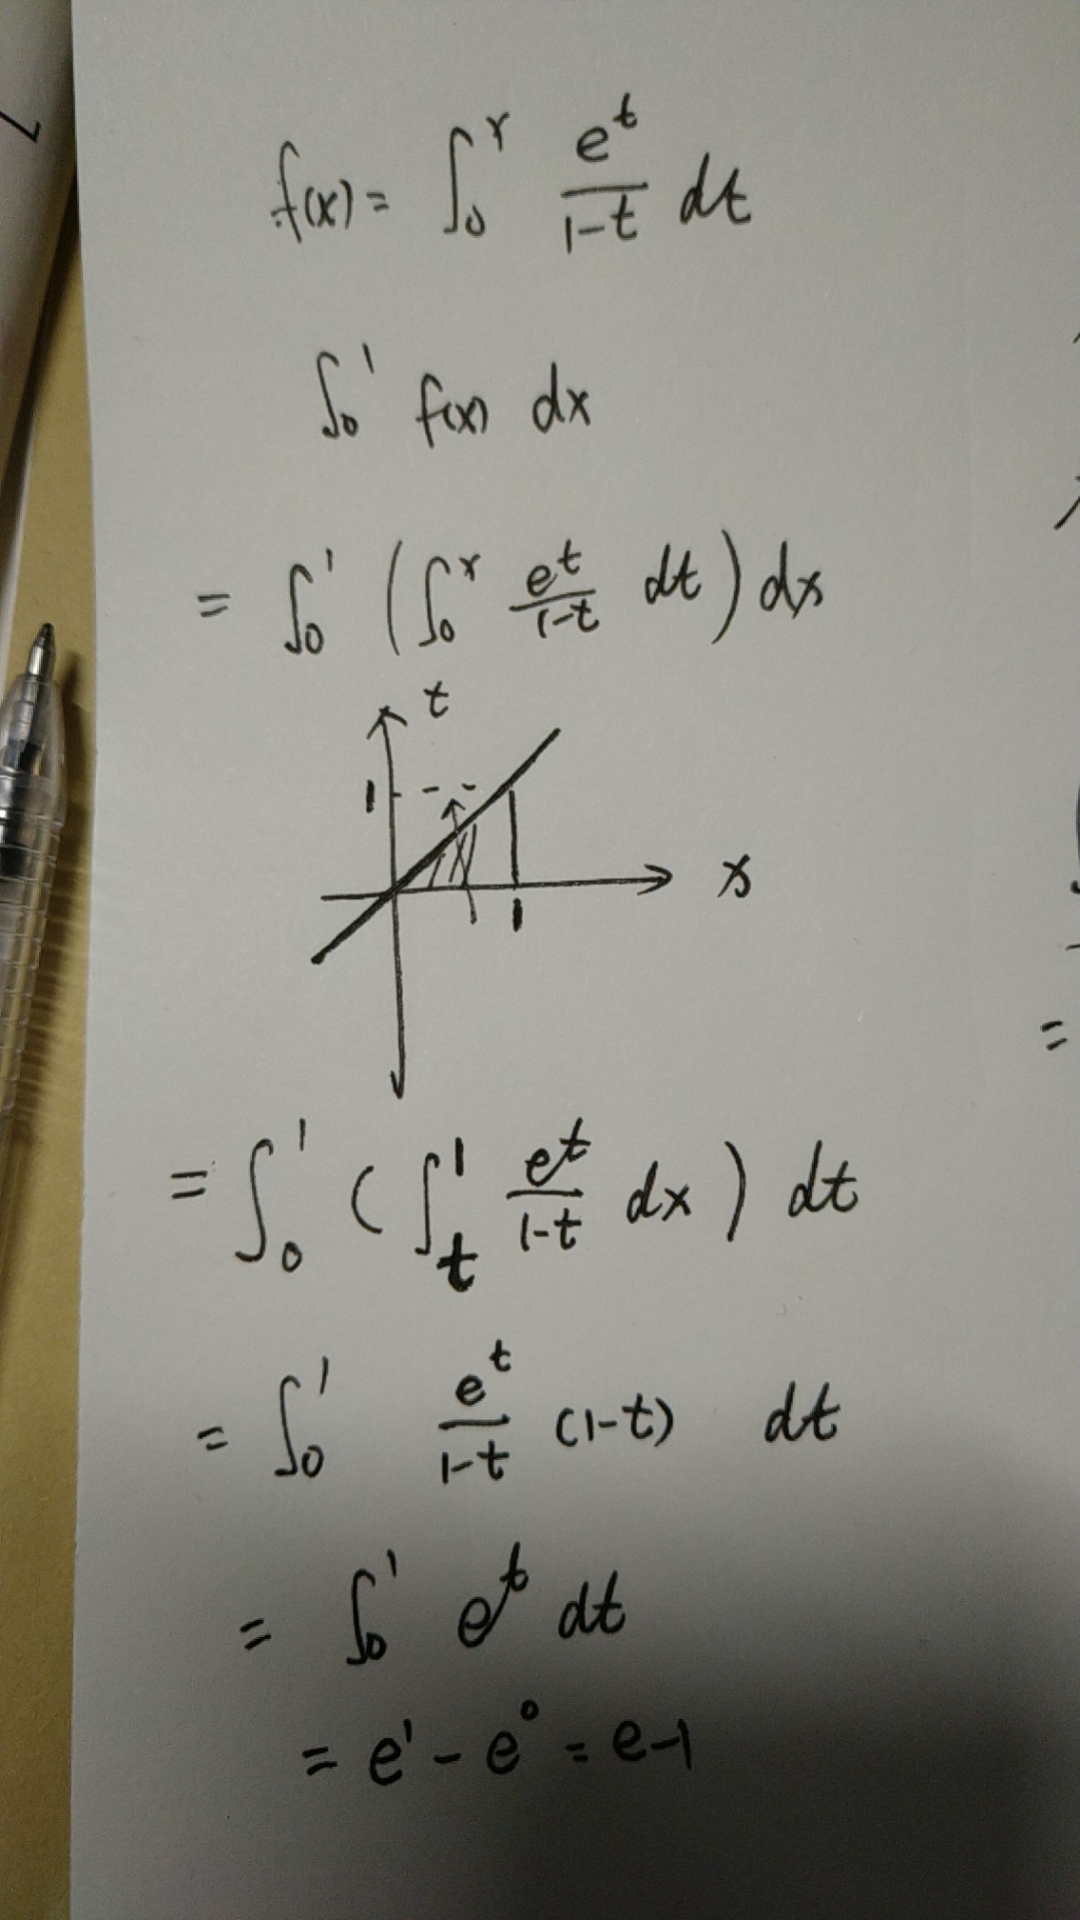 f(x) = ∫₀ˣ e^t/(1-t) dt
∫₀¹ f(x) dx
= ∫₀¹ (∫₀ˣ e^t/(1-t) dt) dx
t
1
x
1
= ∫₀¹ (∫ₜ¹ e^t/(1-t) dx) dt
= ∫₀¹ e^t/(1-t) (1-t) dt
= ∫₀¹ e^t dt
= e¹ - e⁰ = e-1